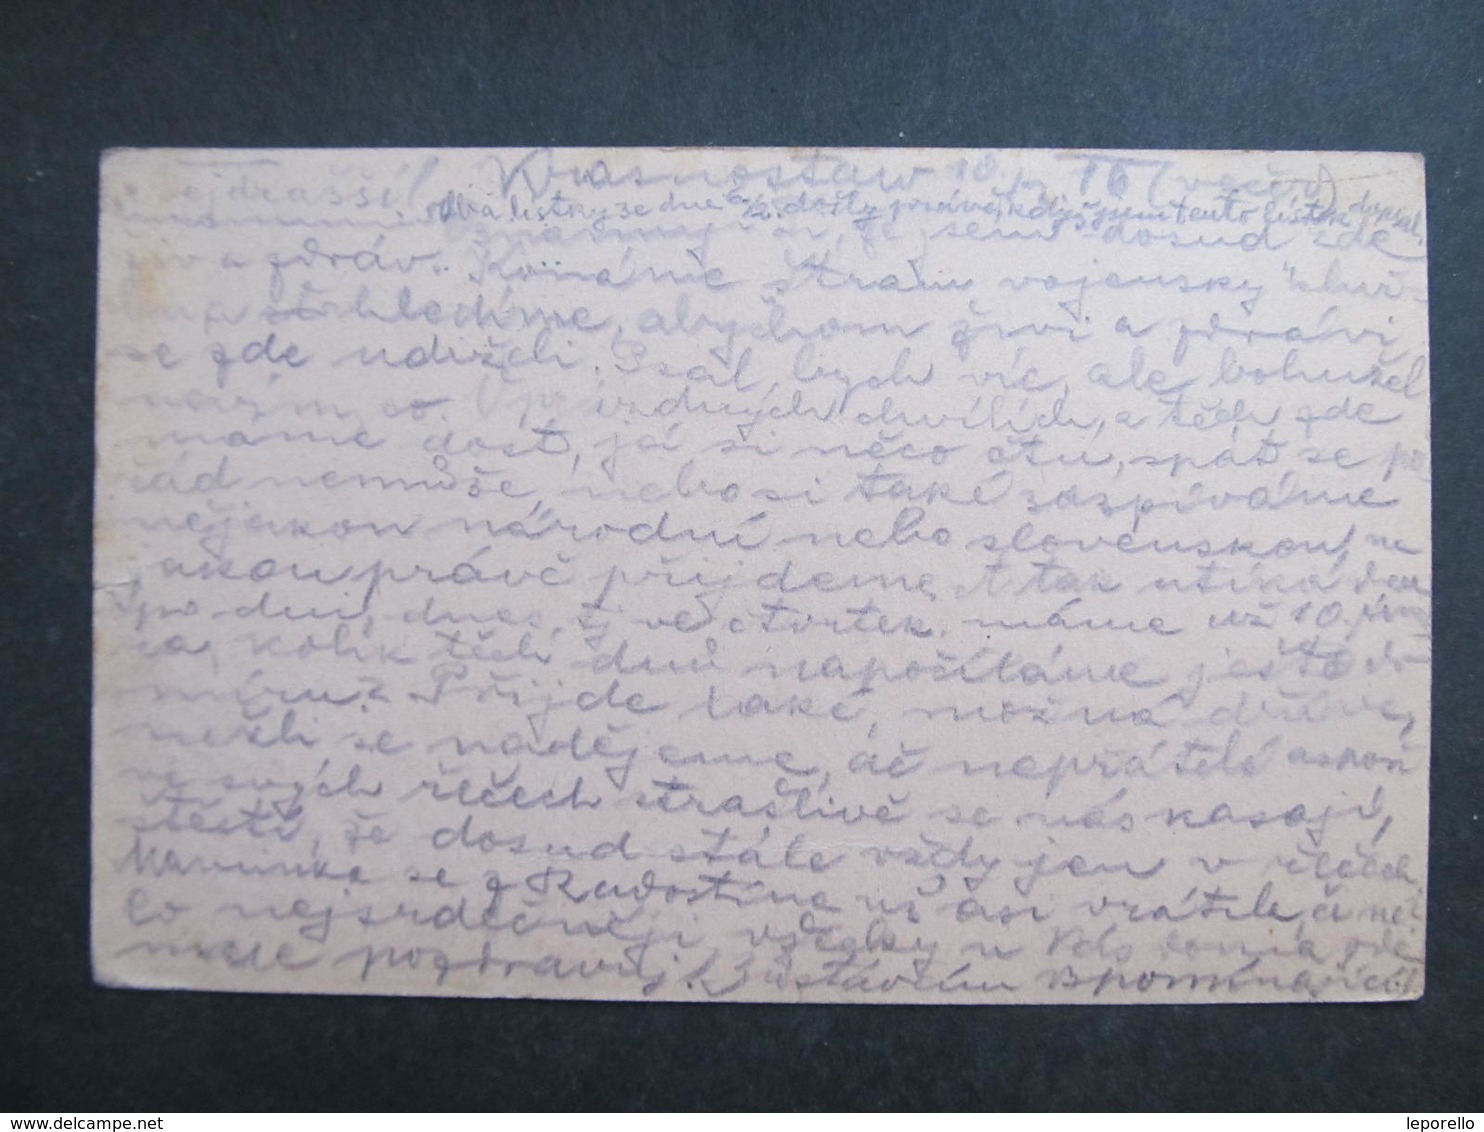 Nejdražší! Krasnostaw 10./ II (večer)
Oba lístky ze dne a 1/2. došly právě, když jsem tento lístek dopsal.
Oznamuji ti, že jsem dosud zde
živ a zdráv. Konáme strážní vojensky "služ-
bu a hledíme, abychom živi a zdrávi
se zde udrželi. Psal bych víc, ale bohužel
nevím co. V prázdných chvílích, a těch zde
máme dost, já si něco čtu, spát se po-
řád nemůže, nebo si také zazpíváme
nějakou národní nebo slovenskou, na
jakou právě přijdeme. A tak utíká den
po dni, dnes, tj ve čtvrtek máme už 10.
ra, kolik těch dnů napočítáme ještě do
míru? Přijde také, možná dříve,
nežli se nadějeme, ač nepřátelé aspoň
ve svých řečech strašlivě se nás kasají,
štěstí, že dosud stále vždy jen v řečech.
Maminka se z Radostína už asi vrátila, či ne?
Co nejsrdečněji všecky u Vás doma ode
mne pozdravuj. S vzpomínající
leporello